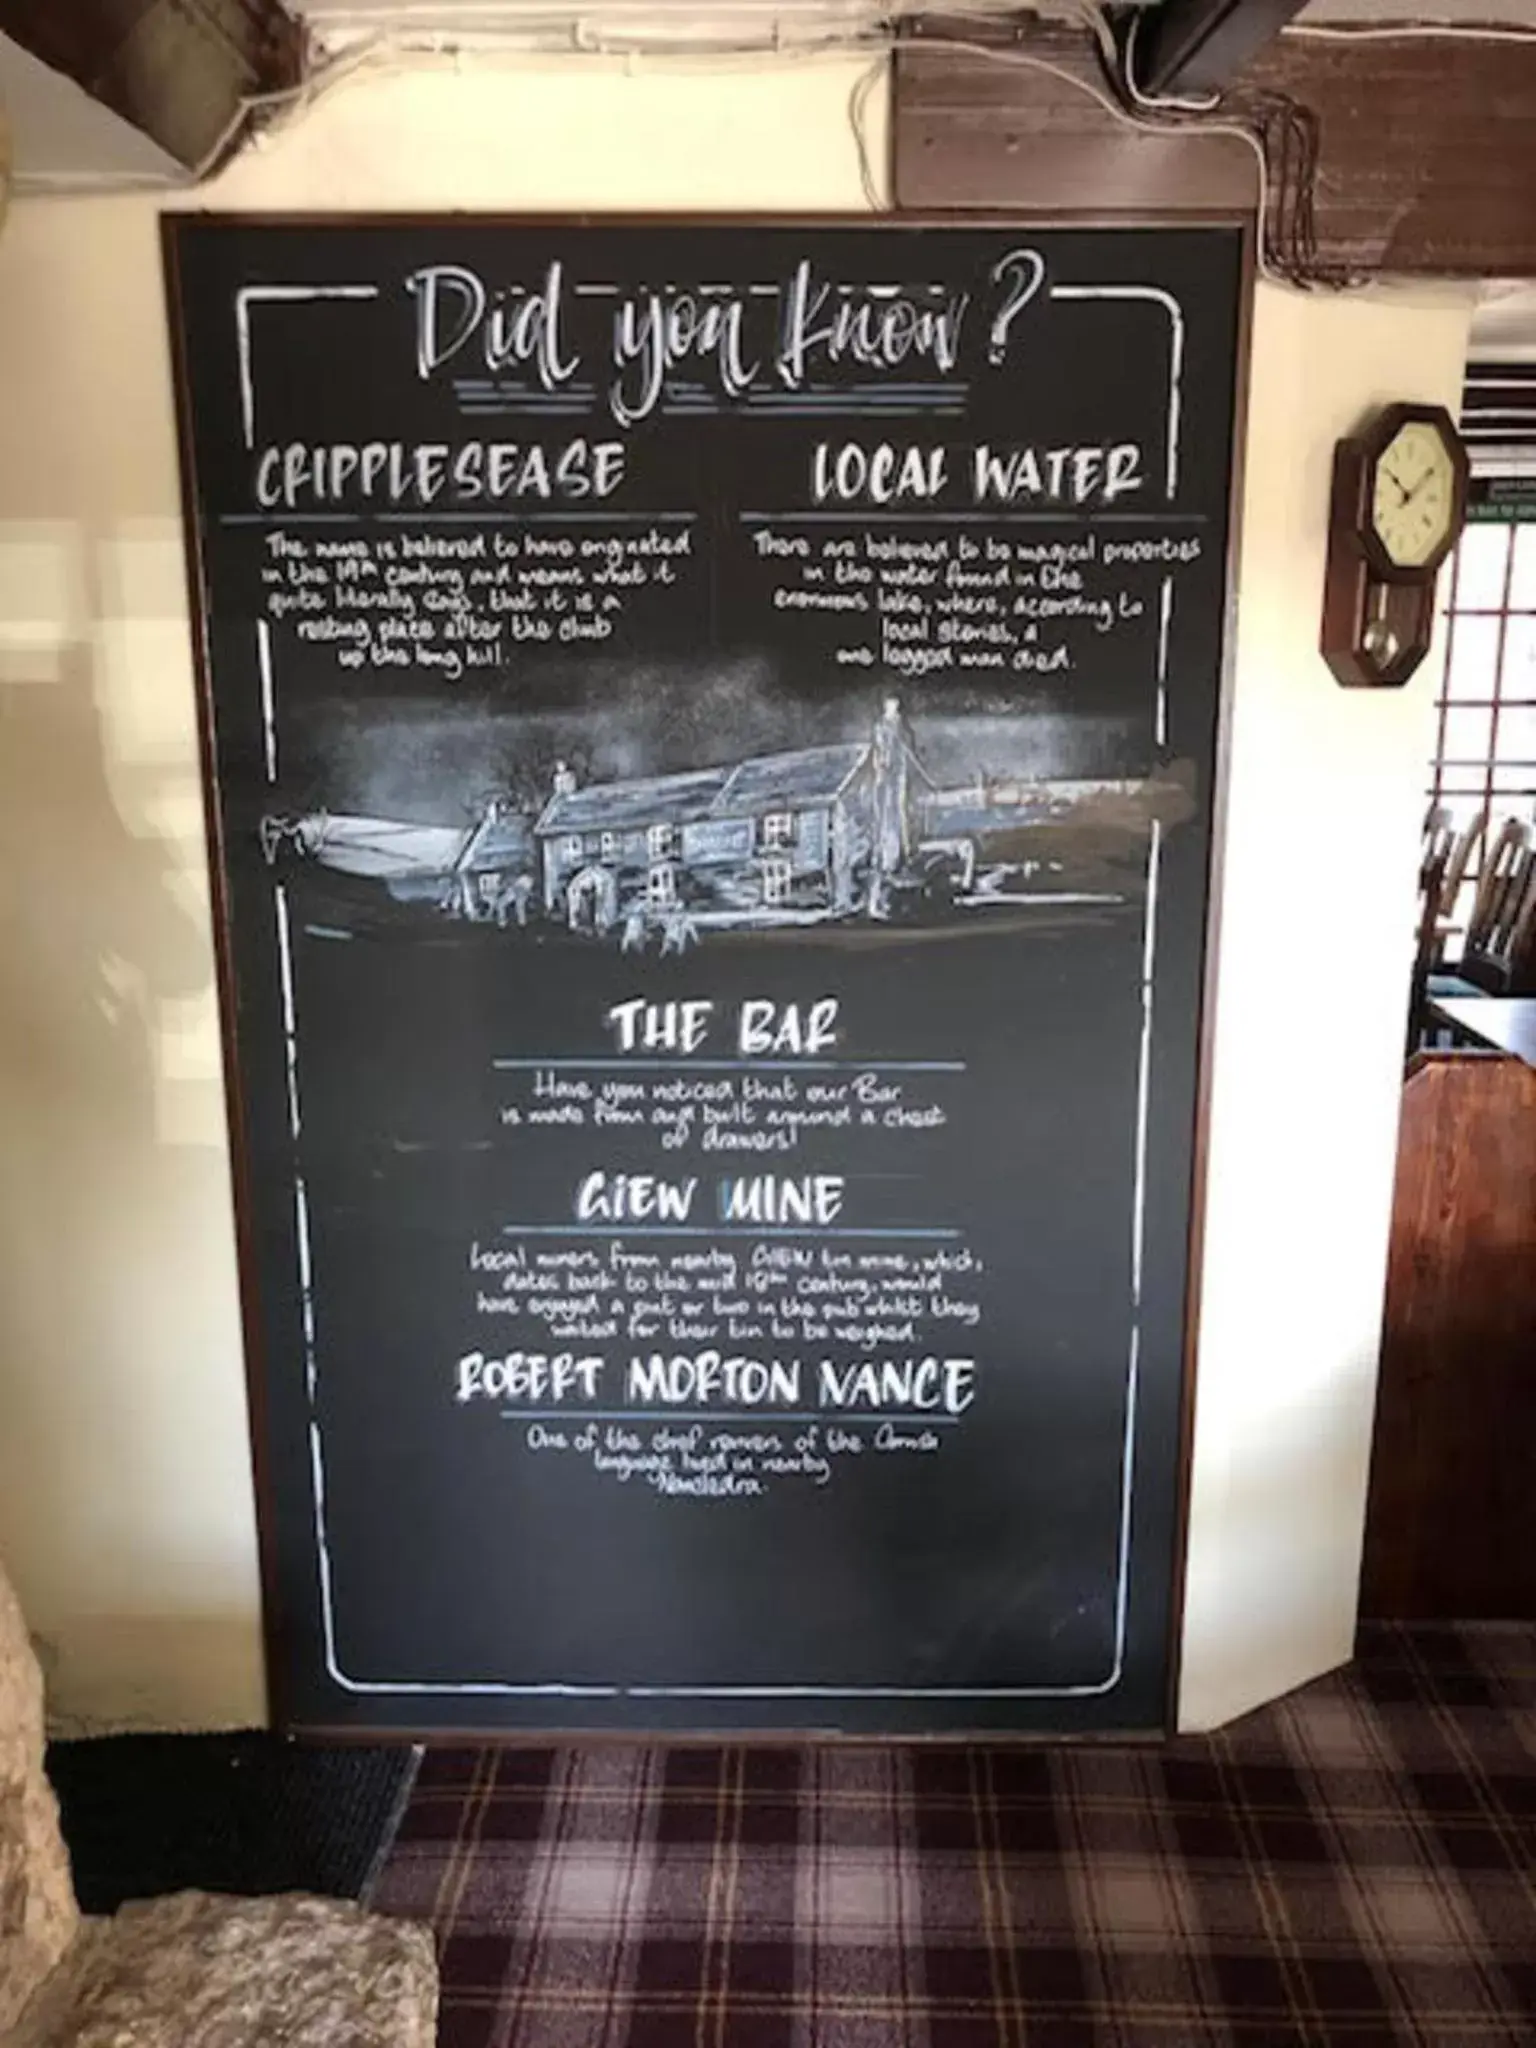 Did you know?
CRIPPLESEASE
The name is believed to have originated
in the 19th century and means what it
quite literally says, that it is a
resting place after the climb
up the long hill.
LOCAL WATER
There are believed to be magical properties
in the water found in the
enormous lake, where, according to
local stories, a
one legged man died.
THE BAR
Have you noticed that our Bar
is made from and built around a chest
of drawers!
GIEW MINE
Local miners from nearby GIEW tin mine, which,
dates back to the mid 18th century, would
have enjoyed a pint or two in the pub whilst they
waited for their tin to be weighed.
ROBERT MORTON NANCE
One of the chief revivers of the Cornish
language lived in nearby
Nancledra.